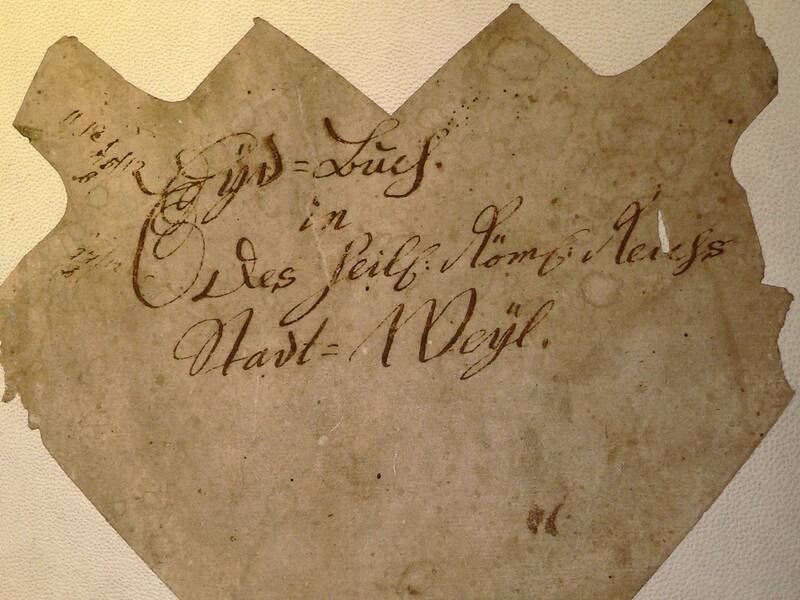 Eÿd=Buch.
in
Des Heilg: Röm: Reichs
Stadt=Weÿl.